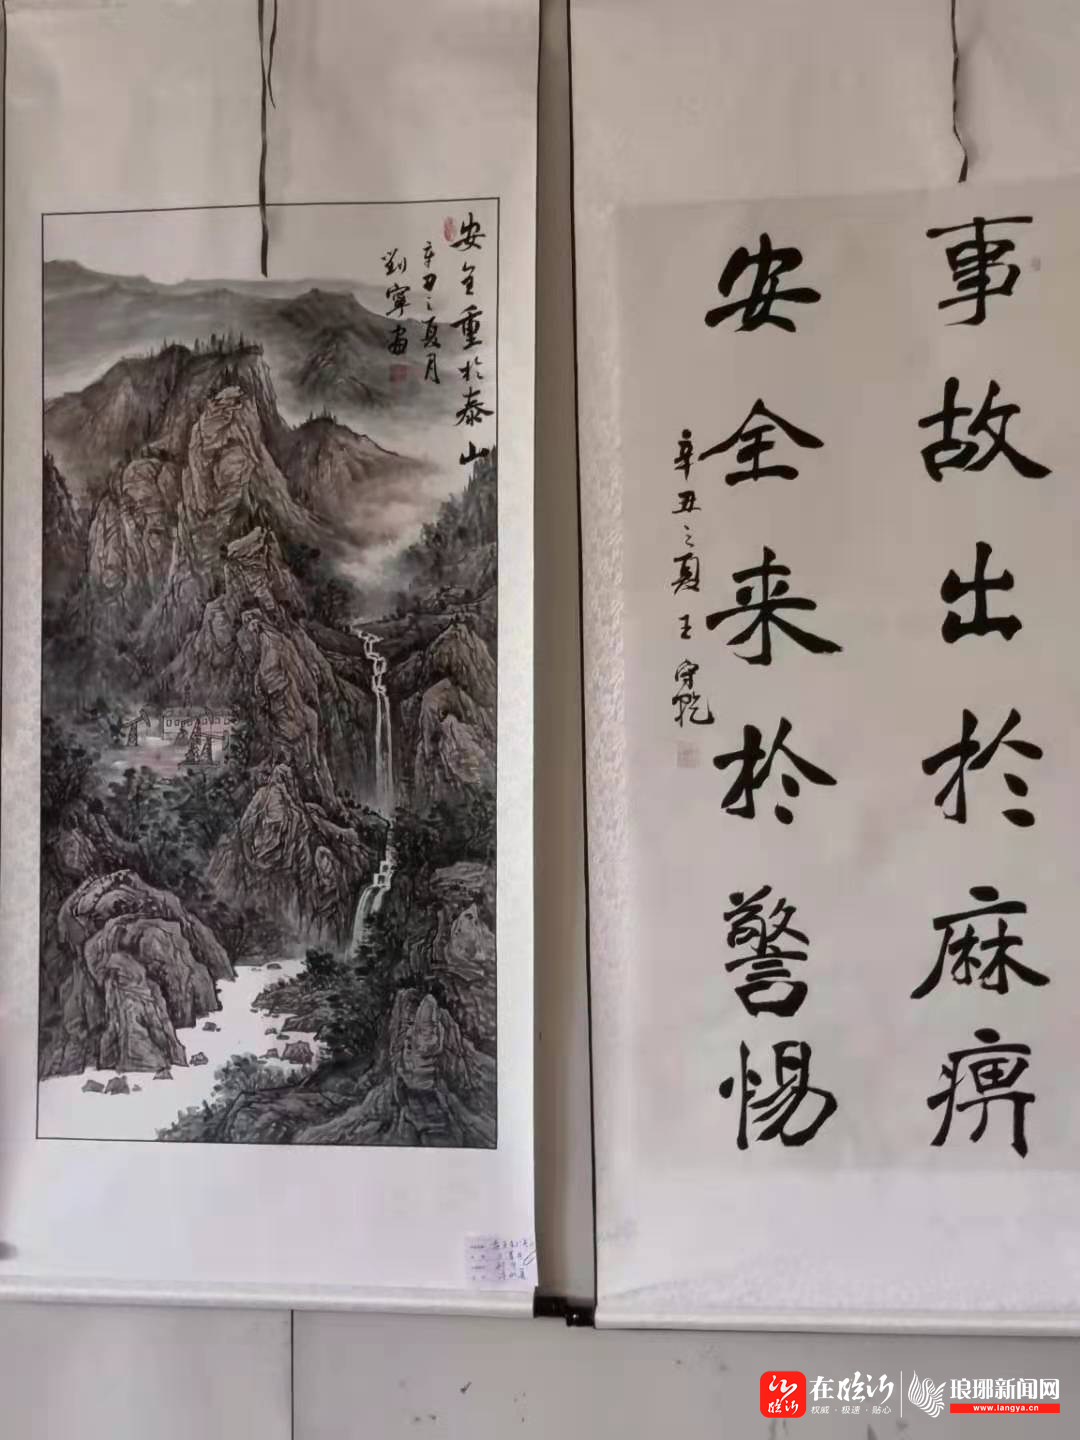 安全重於泰山
辛丑之夏月
劉寧畫
事故出於麻痹
安全来於警惕
辛丑之夏 王守乾
在临沂
权威·极速·贴心
琅琊新闻网
www.langya.cn